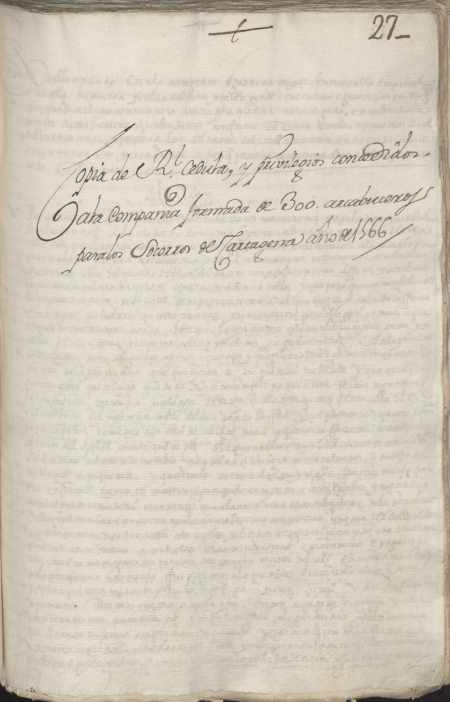 27
Copia de Rl. Cedula, y privilegios concedidos
a la Compania formada de 300. arcabuceros
para los Socorros de Cartagena año de 1566